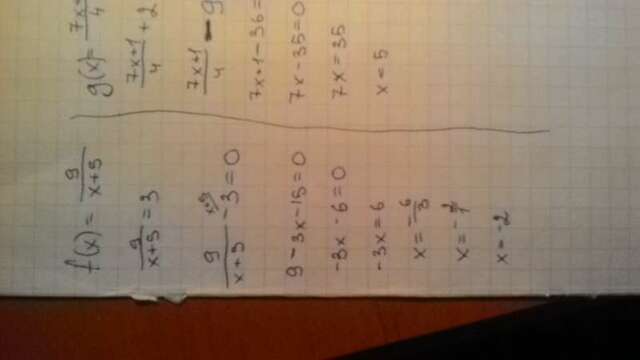 f(x) = 9/(x+5)
9/(x+5) = 3
x+5
9/(x+5) - 3 = 0
9 - 3x - 15 = 0
-3x - 6 = 0
-3x = 6
x = -6/3
x = -2/1
x = -2
g(x) = 7x+/4
(7x+1)/4 + 2
(7x+1)/4 - 9
7x+1-36=
7x-35=0
7x = 35
x = 5